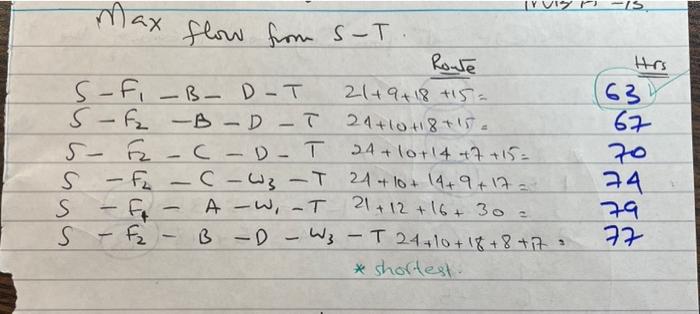 Max flow from S-T.
Route Hrs
S - F1 - B - D - T 21+9+18+15= 63
S - F2 - B - D - T 24+10+18+15= 67
S - F2 - C - D - T 24+10+14+7+15= 70
S - F2 - C - W3 - T 24+10+14+9+17= 74
S - F1 - A - W1 - T 21+12+16+30= 79
S - F2 - B - D - W3 - T 24+10+18+8+17= 77
* shortest.